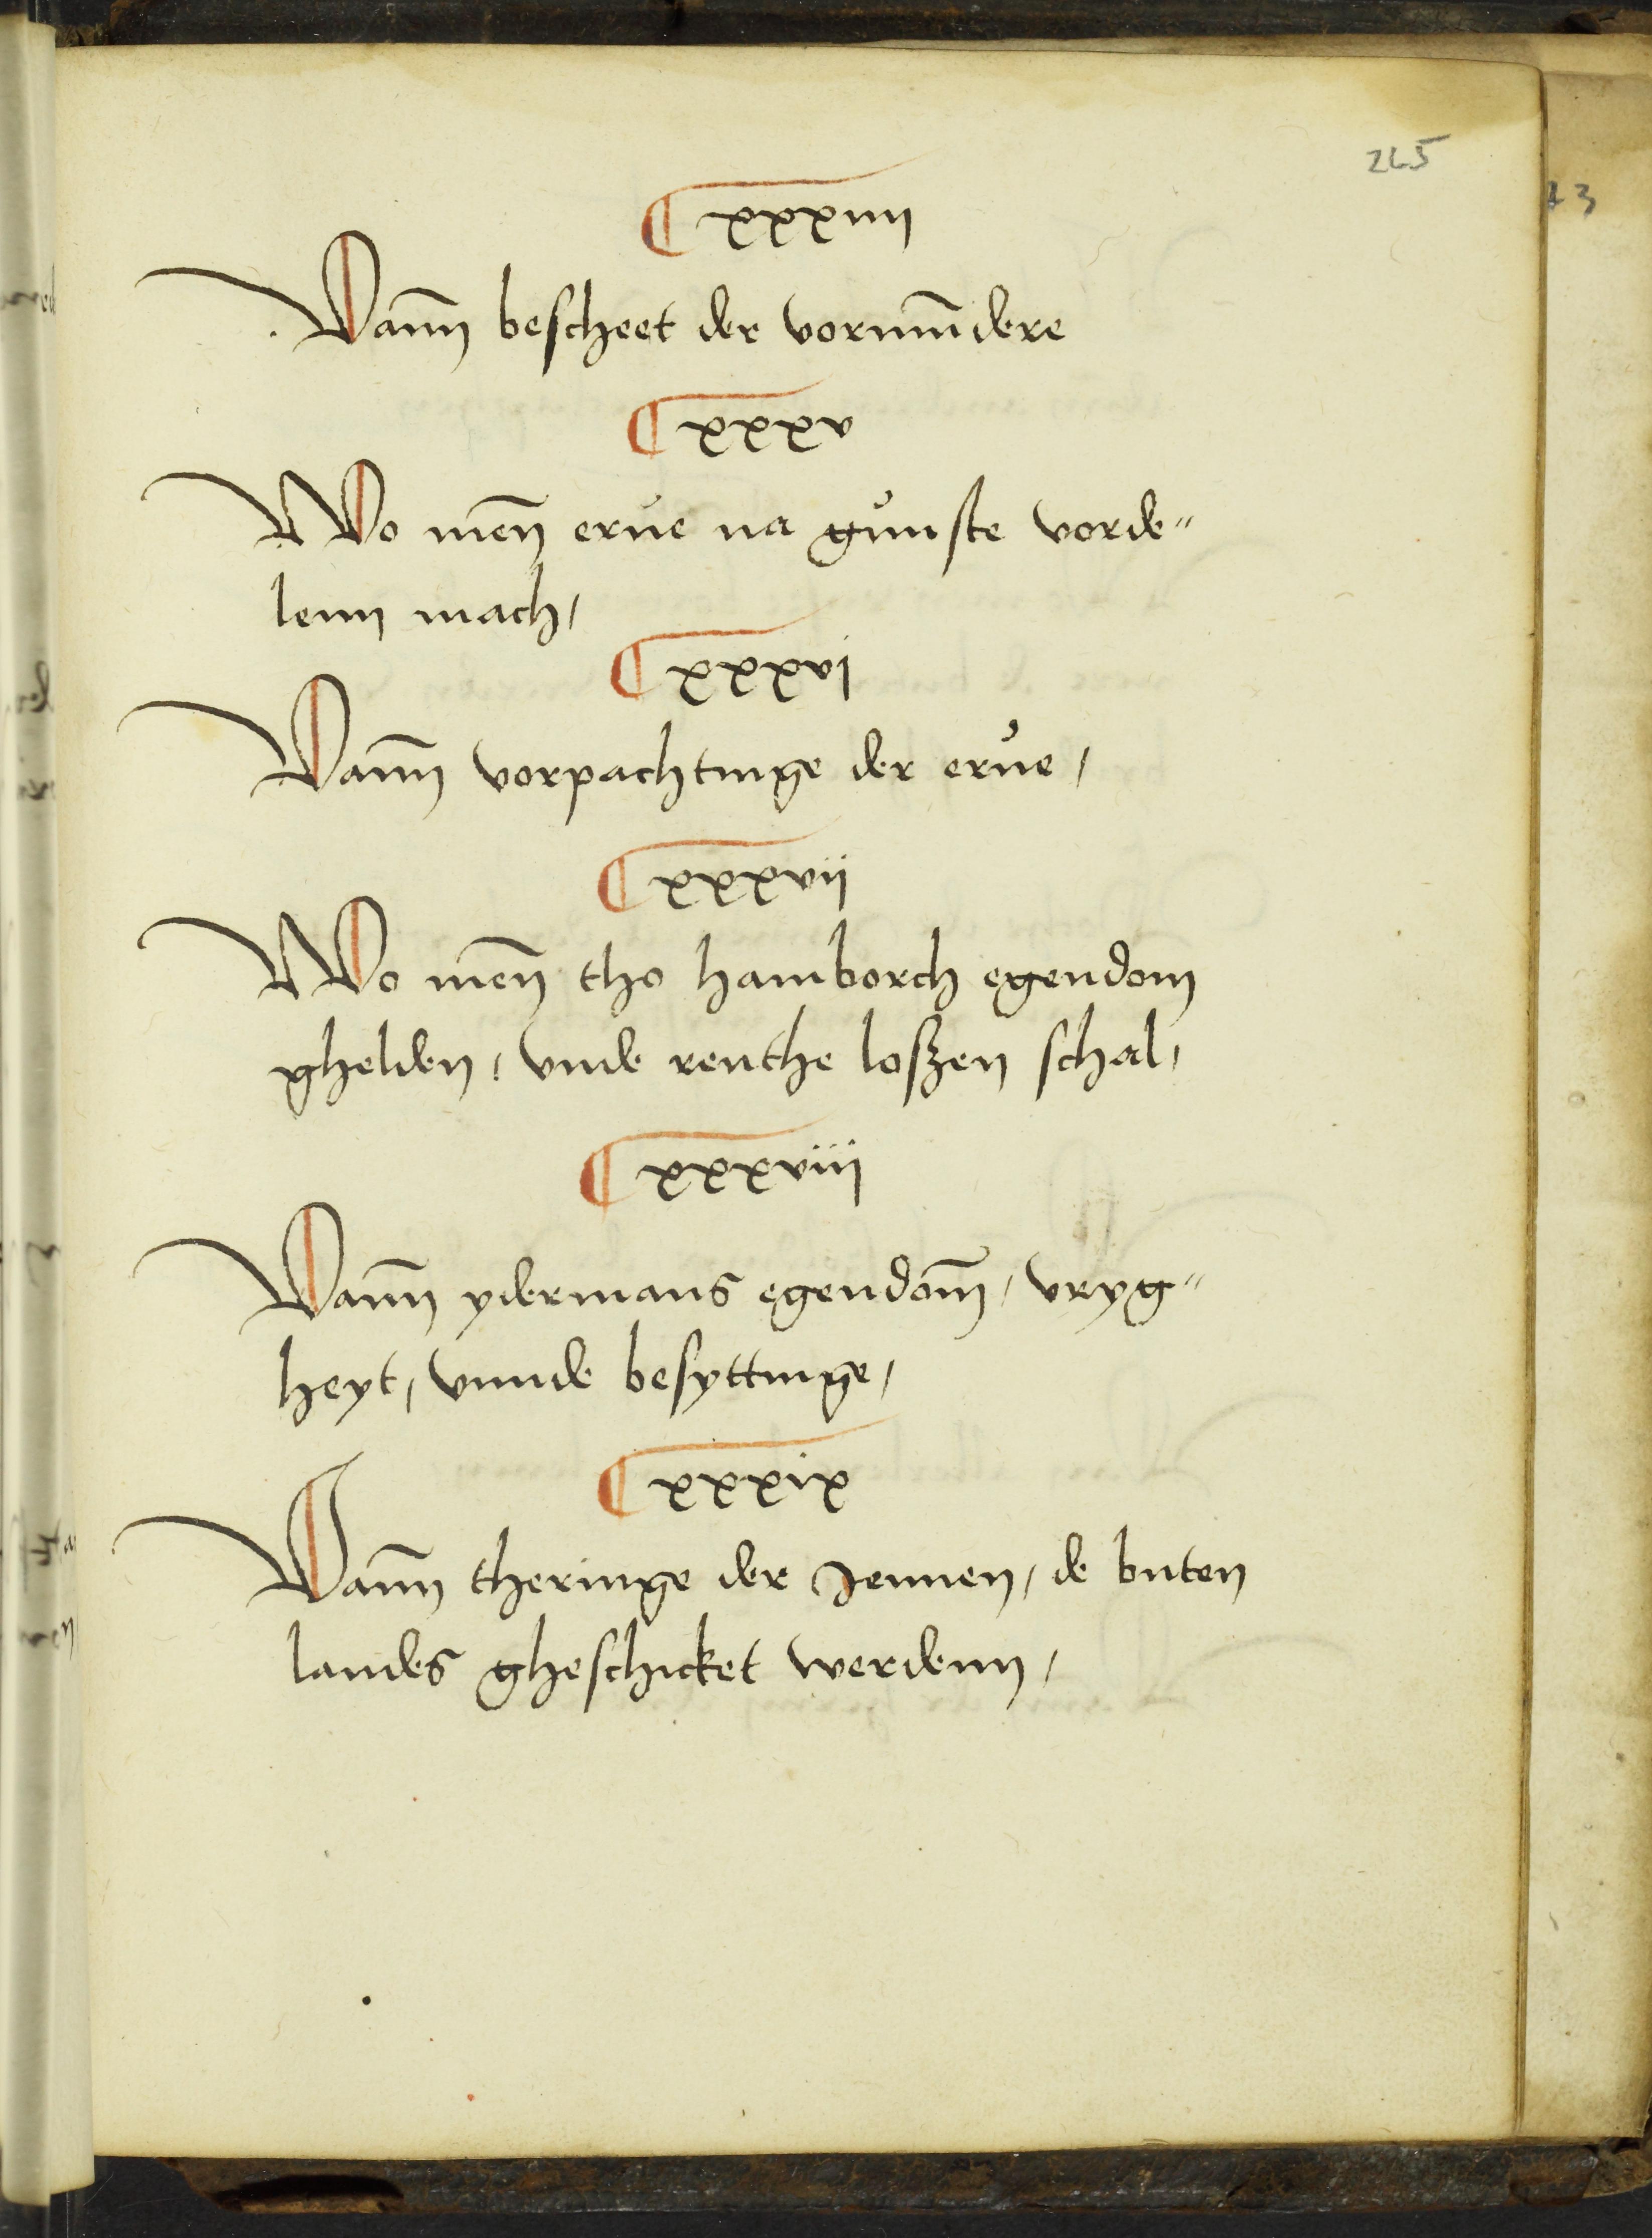 265
¶ xxxiiii
Vann̄ bescheet der vormūdere
¶ xxxv
Wo men̄ erue na gunste vorde„
lenn mach /
¶ xxxvj
Vann̄ vorpachtinge der erue /
¶ xxxvii
Wo men̄ tho hamborch egendom
ghelden / vnde renthe loszen schal /
¶ xxxviij
Vann̄ ydermans egendom̄ / vryg„
heyt / vnnde besyttinge /
¶ xxxix
Vann̄ theringe der Jennen / de buten
landes gheschicket werdenn /